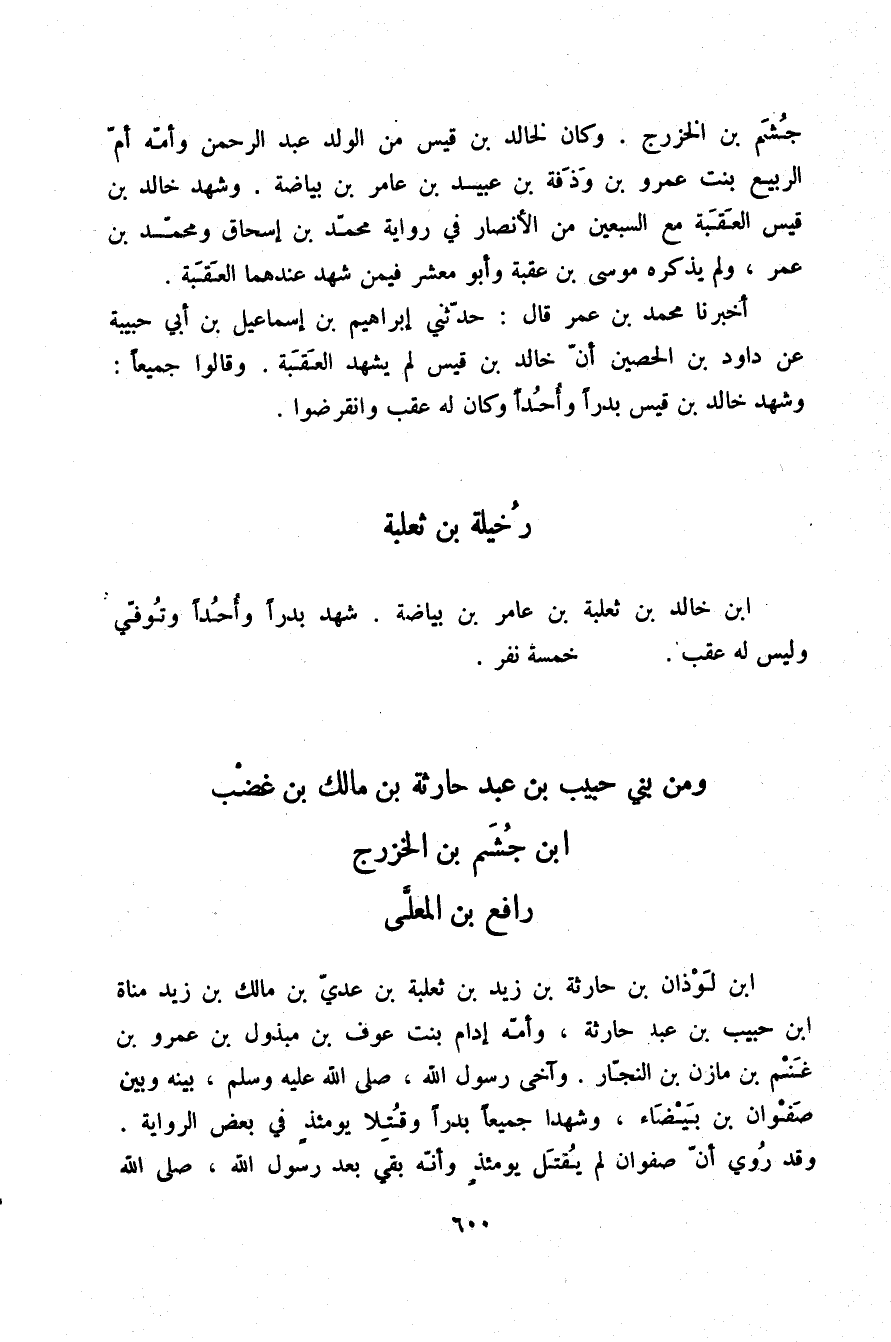 جُشَم بن الخزرج . وكان لخالد بن قيس من الولد عبد الرحمن وأمّه أمّ
الربيع بنت عمرو بن وَذَفة بن عبيد بن عامر بن بياضة . وشهد خالد بن
قيس العَقَبة مع السبعين من الأنصار في رواية محمّد بن إسحاق ومحمّد بن
عمر ، ولم يذكره موسى بن عقبة وأبو معشر فيمن شهد عندهما العَقَبة .
أخبرنا محمد بن عمر قال : حدّثني إبراهيم بن إسماعيل بن أبي حبيبة
عن داود بن الحصين أنّ خالد بن قيس لم يشهد العَقَبة . وقالوا جميعاً :
وشهد خالد بن قيس بدراً وأُحُداً وكان له عقب وانقرضوا .
رُخيلة بن ثعلبة
ابن خالد بن ثعلبة بن عامر بن بياضة . شهد بدراً وأُحُداً وتُوفّي
وليس له عقب . خمسة نفر .
ومن بني حبيب بن عبد حارثة بن مالك بن غضْب
ابن جُشَم بن الخزرج
رافع بن المعلَّى
ابن لَوْذان بن حارثة بن زيد بن ثعلبة بن عديّ بن مالك بن زيد مناة
ابن حبيب بن عبد حارثة ، وأمّه إدام بنت عوف بن مبذول بن عمرو بن
غَنْم بن مازن بن النجّار . وآخى رسول الله ، صلى الله عليه وسلم ، بينه وبين
صَفْوان بن بَيْضَاء ، وشهدا جميعاً بدراً وقُتِلا يومئذٍ في بعض الرواية .
وقد رُوي أنّ صفوان لم يُقتَل يومئذٍ وأنّه بقي بعد رسول الله ، صلى الله
٦٠٠